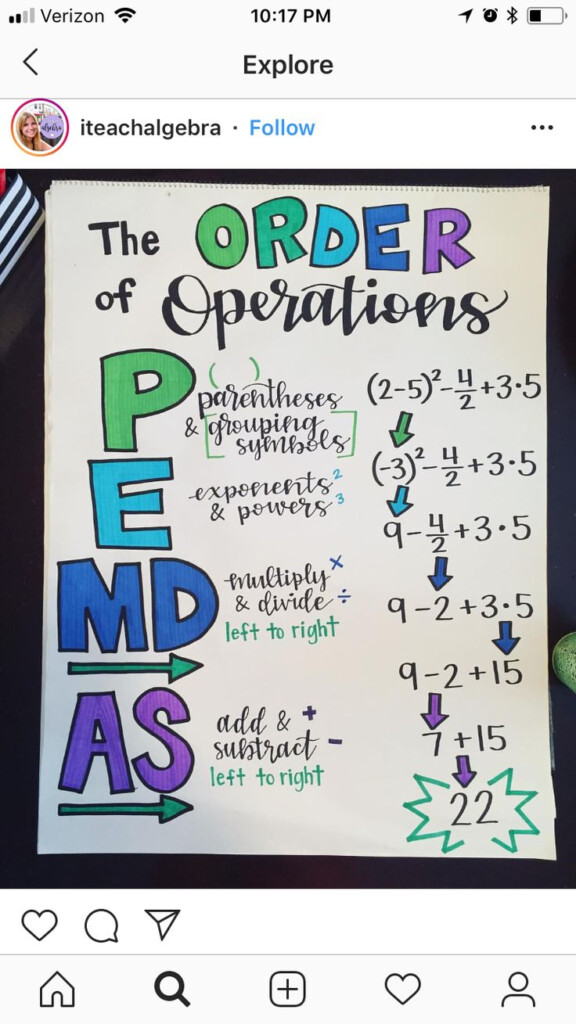 Verizon 10:17 PM
Explore
iteachalgebra · Follow
The ORDER
of Operations
P
( )
parentheses
& [grouping
symbols]
E
exponents 2
& powers 3
MD
multiply ×
& divide ÷
left to right
AS
add & +
subtract −
left to right
(2-5)²-4/2+3·5
(-3)²-4/2+3·5
9-4/2+3·5
9-2+3·5
9-2+15
7+15
22